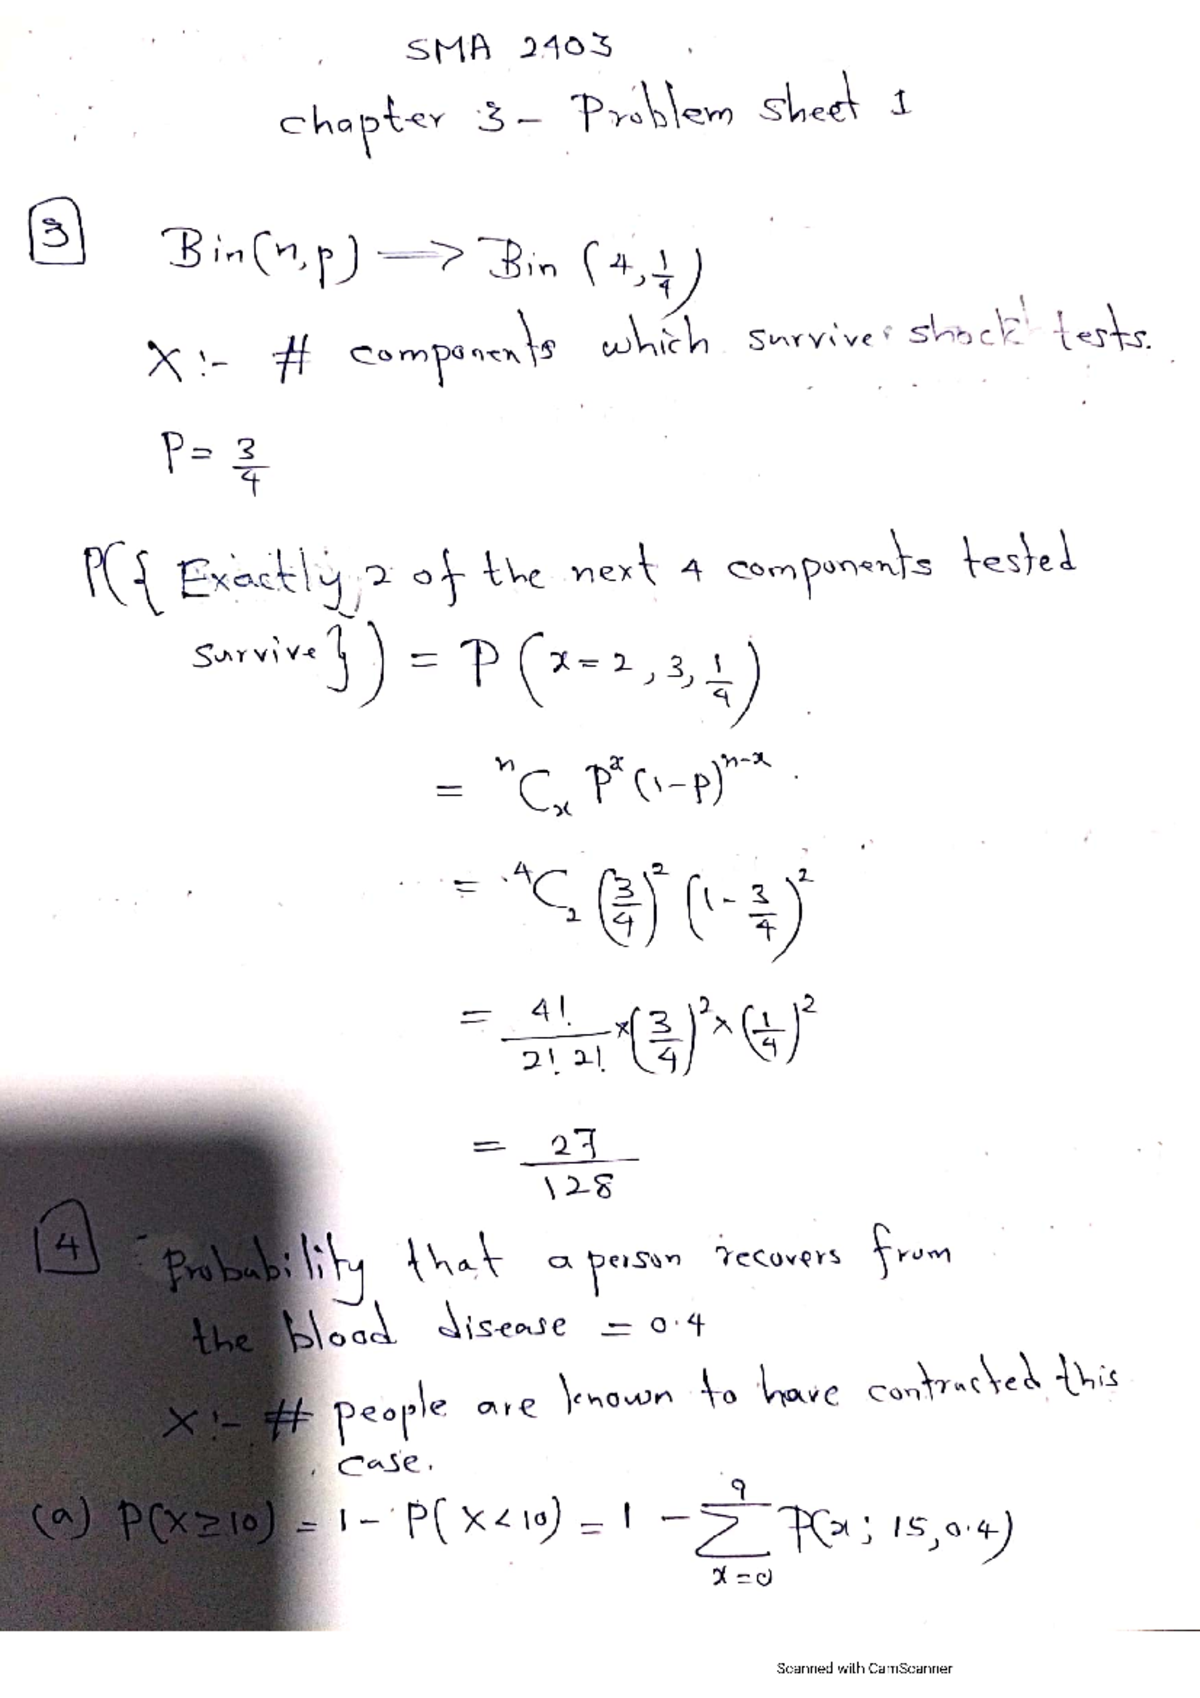 SMA 2403
Chapter 3 - Problem Sheet 1
3 Bin(n,p) ⟹ Bin (4, 1/4)
X :- # components which survives shock tests.
P = 3/4
P({ Exactly 2 of the next 4 components tested
survive}) = P (x = 2, 3, 1/4)
= ⁿCₓ pˣ (1-p)ⁿ⁻ˣ.
= ⁴C₂ (3/4)² (1 - 3/4)²
= 4!/2! 2! × (3/4)² × (1/4)²
= 27/128
4 Probability that a person recovers from
the blood disease = 0.4
X :- # people are known to have contracted this
case.
(a) P(X ≥ 10) = 1 - P(X < 10) = 1 - ∑ₓ₌₀⁹ P(x; 15, 0.4)
Scanned with CamScanner